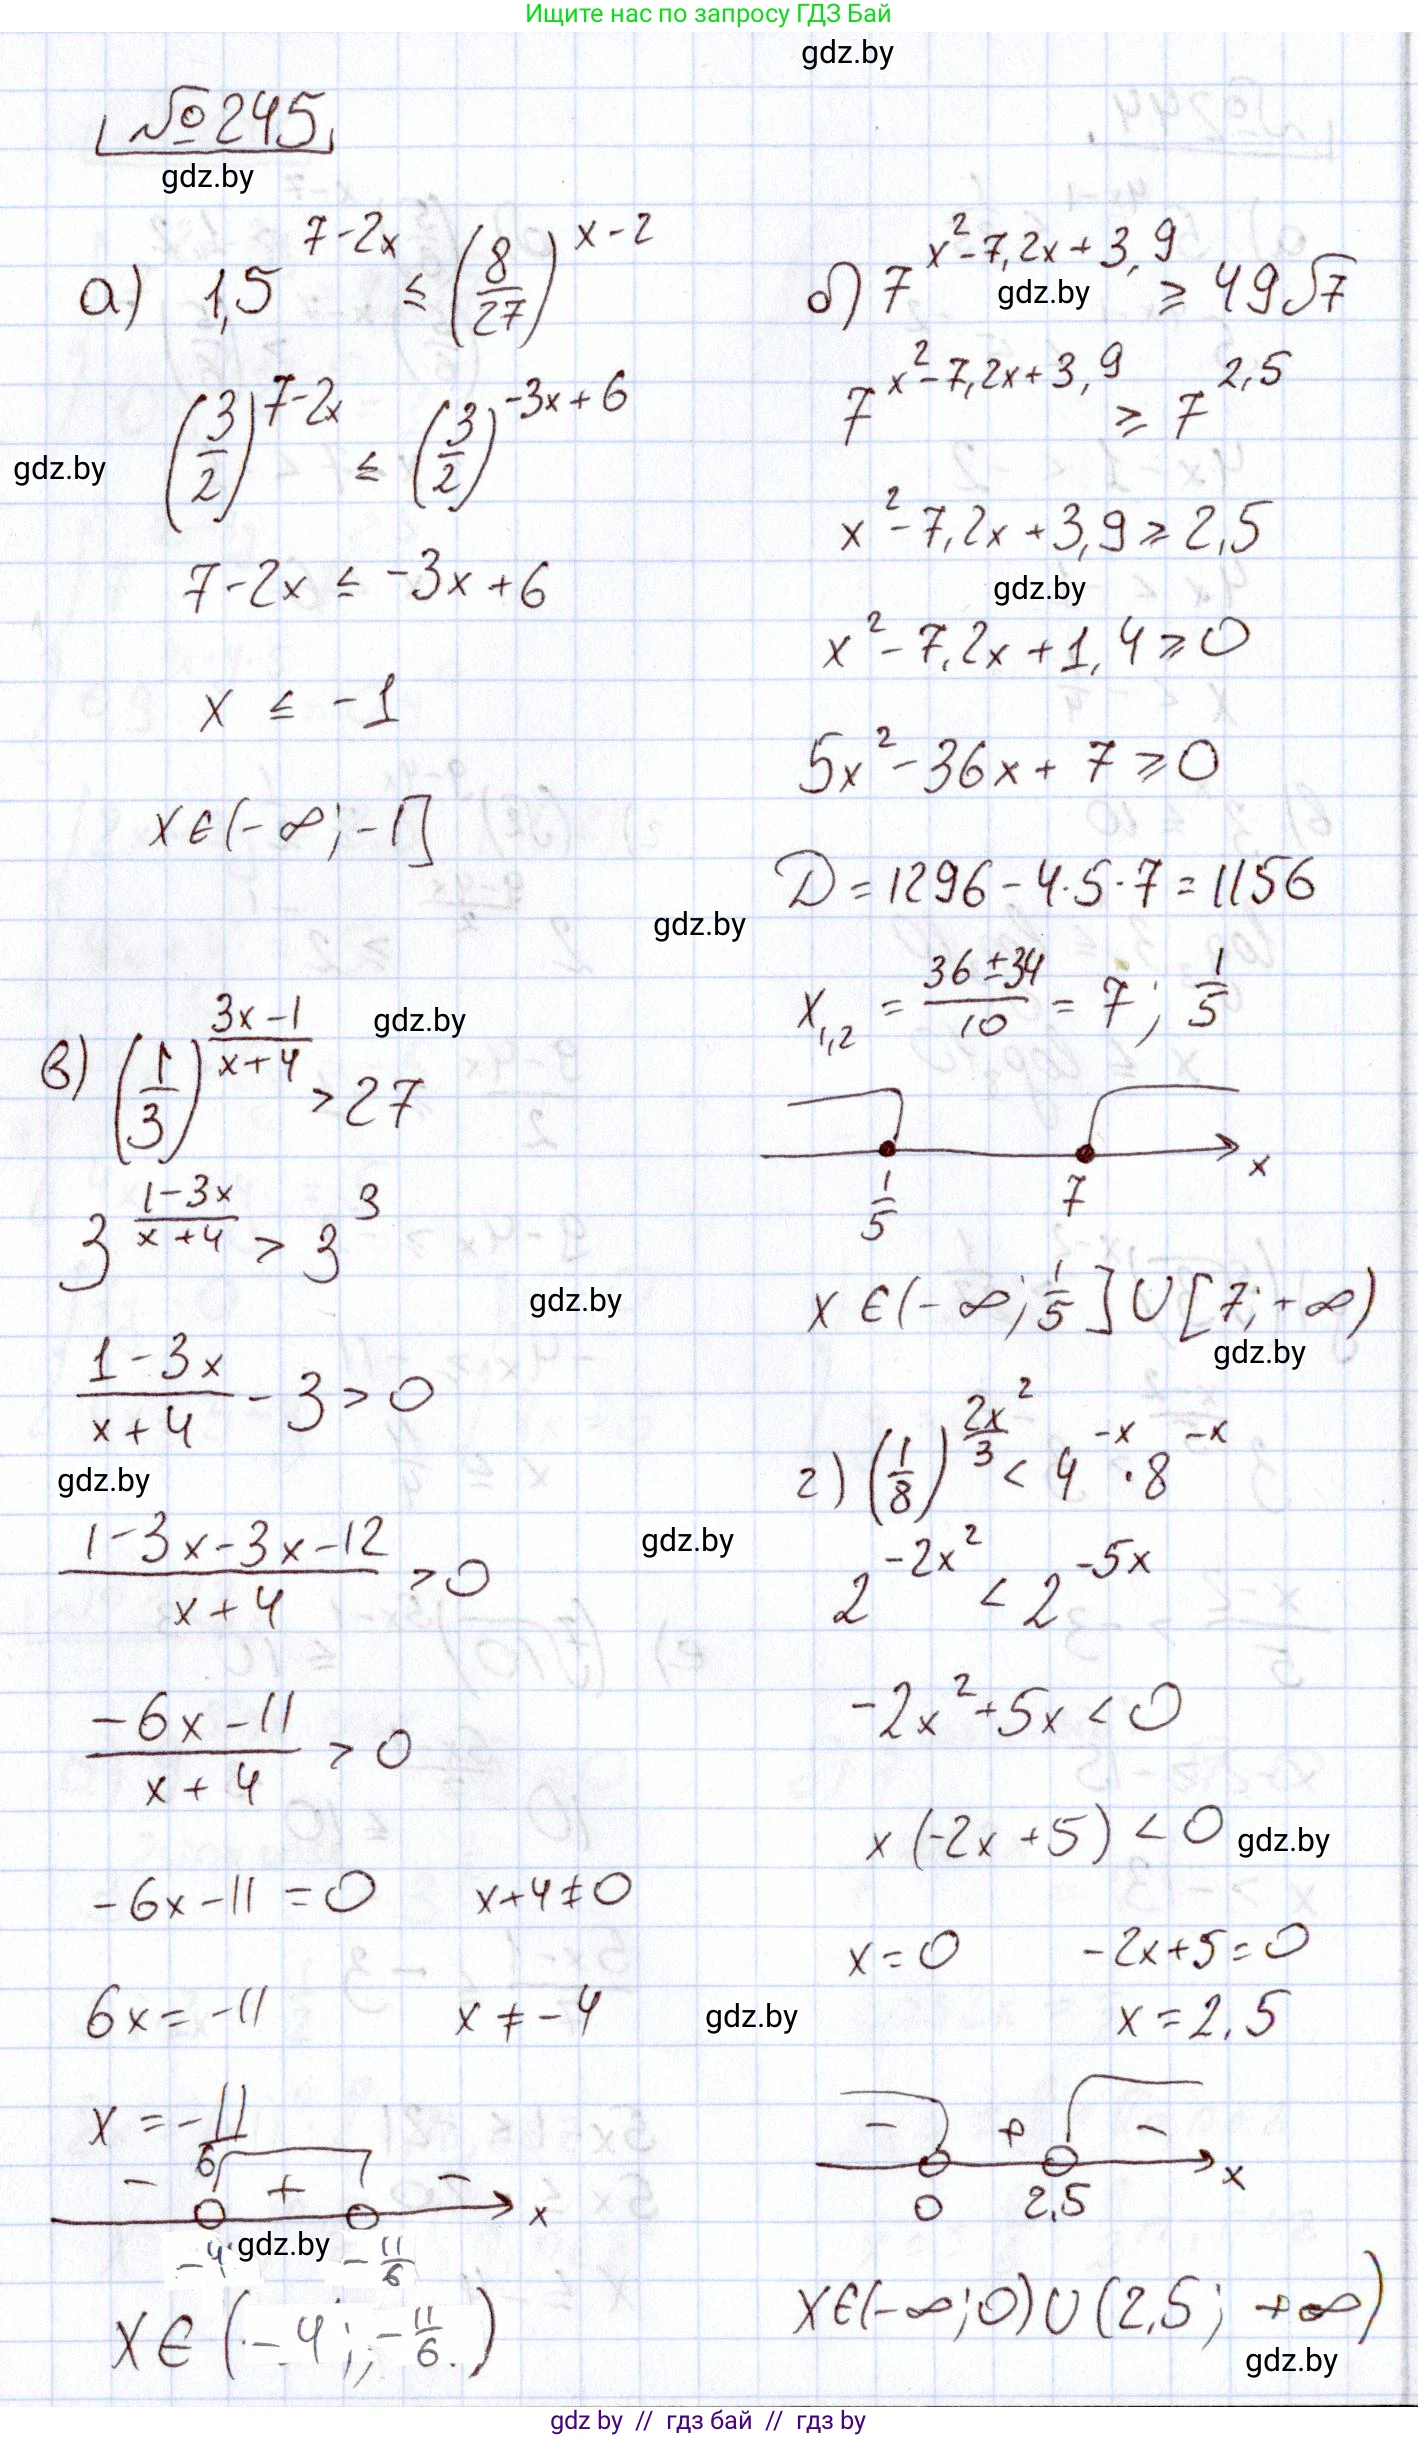 Ищите нас по запросу ГДЗ Бай
gdz.by
№245
gdz.by
а) 1,5^(7-2x) ≤ (8/27)^(x-2)
(3/2)^(7-2x) ≤ (3/2)^(-3x+6)
gdz.by
7-2x ≤ -3x+6
x ≤ -1
x∈(-∞; -1]
б) 7^(x²-7,2x+3,9) ≥ 49√7
gdz.by
7^(x²-7,2x+3,9) ≥ 7^(2,5)
x²-7,2x+3,9 ≥ 2,5
gdz.by
x²-7,2x+1,4 ≥ 0
5x²-36x+7 ≥ 0
D = 1296-4·5·7 = 1156
gdz.by
x₁,₂ = (36±34)/10 = 7; 1/5
1/5 7 x
x∈(-∞; 1/5]∪[7; +∞)
gdz.by
в) (1/3)^((3x-1)/(x+4)) > 27
gdz.by
3^((1-3x)/(x+4)) > 3³
gdz.by
(1-3x)/(x+4) - 3 > 0
gdz.by
(1-3x-3x-12)/(x+4) > 0
gdz.by
(-6x-11)/(x+4) > 0
-6x-11 = 0 x+4 ≠ 0
6x = -11 x ≠ -4
gdz.by
x = -11/6
- + - x
-4 gdz.by -11/6
x∈(-4; -11/6)
г) (1/8)^(2x²/3) < 4^(-x)·8^(-x)
2^(-2x²) < 2^(-5x)
-2x²+5x < 0
x(-2x+5) < 0
gdz.by
x = 0 -2x+5 = 0
x = 2,5
- + - x
0 2,5
x∈(-∞; 0)∪(2,5; +∞)
gdz.by
gdz by // гдз бай // гдз by